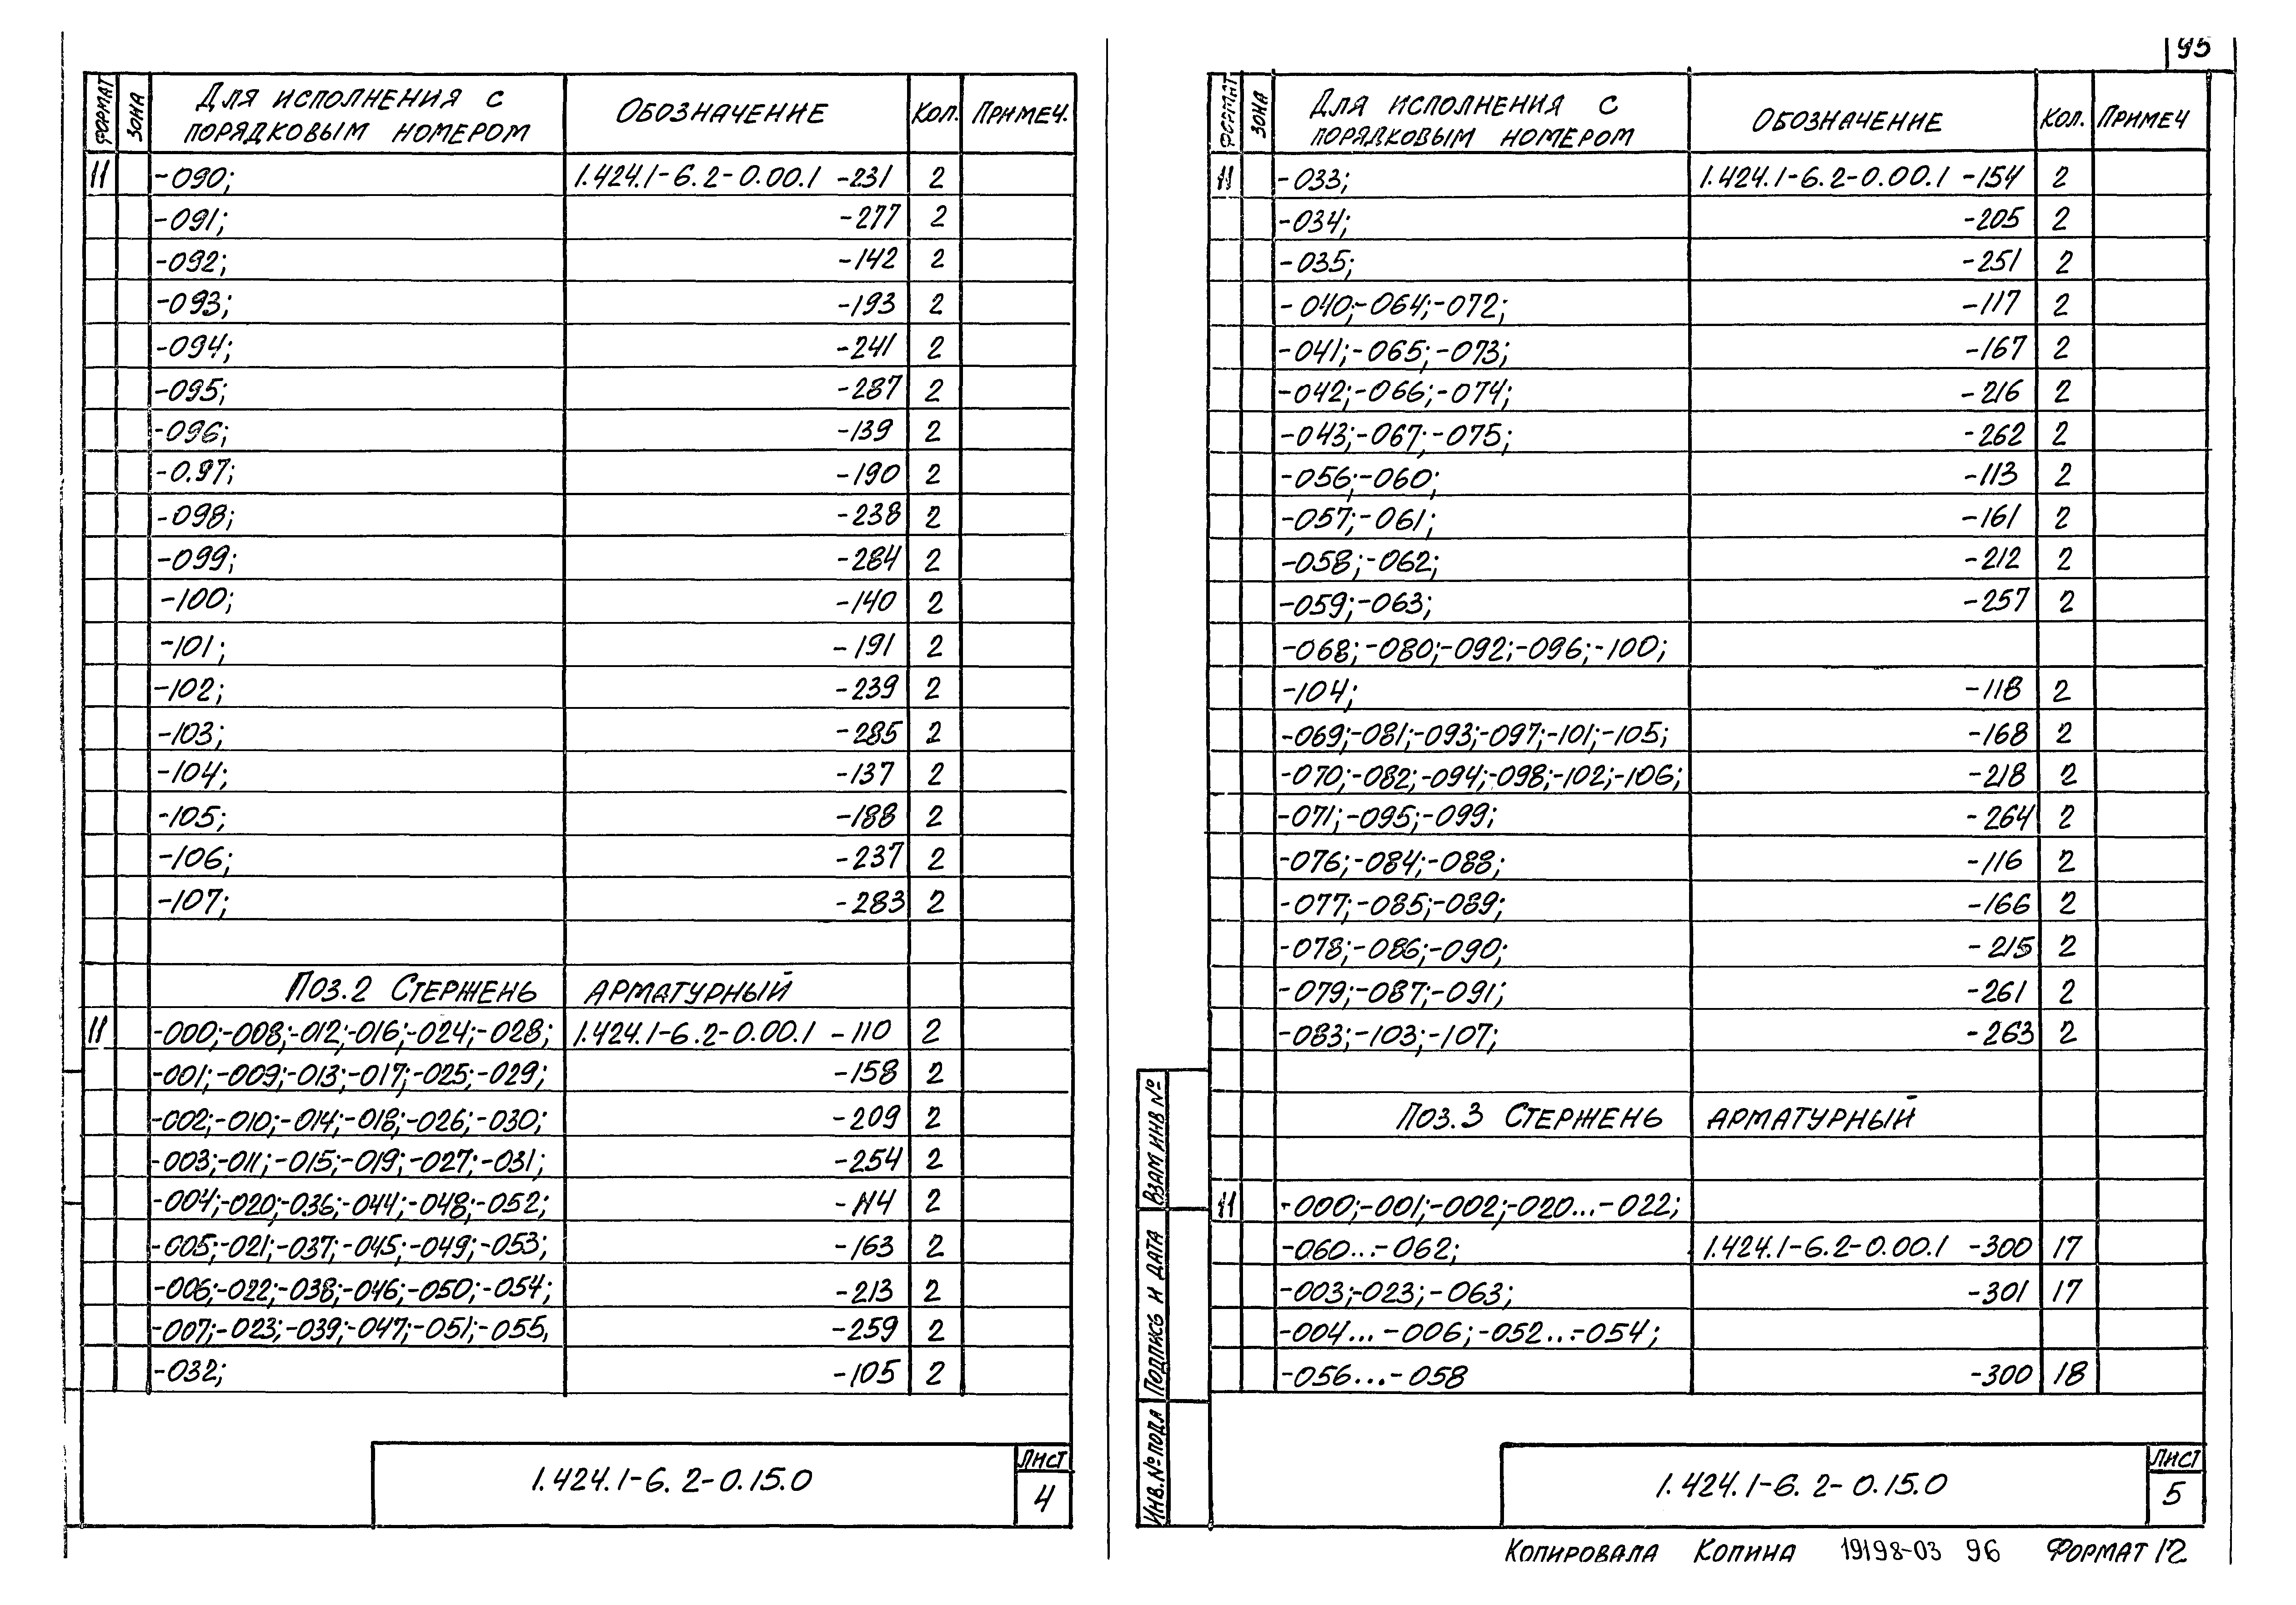 95
ФОРМАТ ЗОНА Для исполнения с порядковым номером Обозначение Кол. Примеч.
11 -090; 1.424.1-6.2-0.00.1 -231 2
-091; -277 2
-092; -142 2
-093; -193 2
-094; -241 2
-095; -287 2
-096; -139 2
-0.97; -190 2
-098; -238 2
-099; -284 2
-100; -140 2
-101; -191 2
-102; -239 2
-103; -285 2
-104; -137 2
-105; -188 2
-106; -237 2
-107; -283 2
Поз.2 Стержень арматурный
11 -000;-008;-012;-016;-024;-028; 1.424.1-6.2-0.00.1 -110 2
-001;-009;-013;-017;-025;-029; -158 2
-002;-010;-014;-018;-026;-030; -209 2
-003;-011;-015;-019;-027;-031; -254 2
-004;-020;-036;-044;-048;-052; -114 2
-005;-021;-037;-045;-049;-053; -163 2
-006;-022;-038;-046;-050;-054; -213 2
-007;-023;-039;-047;-051;-055, -259 2
-032; -105 2
1.424.1-6.2-0.15.0
Лист
4
ФОРМАТ ЗОНА Для исполнения с порядковым номером Обозначение Кол. Примеч
11 -033; 1.424.1-6.2-0.00.1 -154 2
-034; -205 2
-035; -251 2
-040;-064;-072; -117 2
-041;-065;-073; -167 2
-042;-066;-074; -216 2
-043;-067;-075; -262 2
-056;-060; -113 2
-057;-061; -161 2
-058;-062; -212 2
-059;-063; -257 2
-068;-080;-092;-096;-100;
-104; -118 2
-069;-081;-093;-097;-101;-105; -168 2
-070;-082;-094;-098;-102;-106; -218 2
-071;-095;-099; -264 2
-076;-084;-088; -116 2
-077;-085;-089; -166 2
-078;-086;-090; -215 2
-079;-087;-091; -261 2
-083;-103;-107; -263 2
Поз.3 Стержень арматурный
11 -000;-001;-002;-020...-022;
-060...-062; 1.424.1-6.2-0.00.1 -300 17
-003;-023;-063; -301 17
-004...-006;-052...-054;
-056...-058 -300 18
Инв.№подл Подпись и дата Взам инв №
1.424.1-6.2-0.15.0
Лист
5
Копировала Копина 19198-03 96 Формат 12